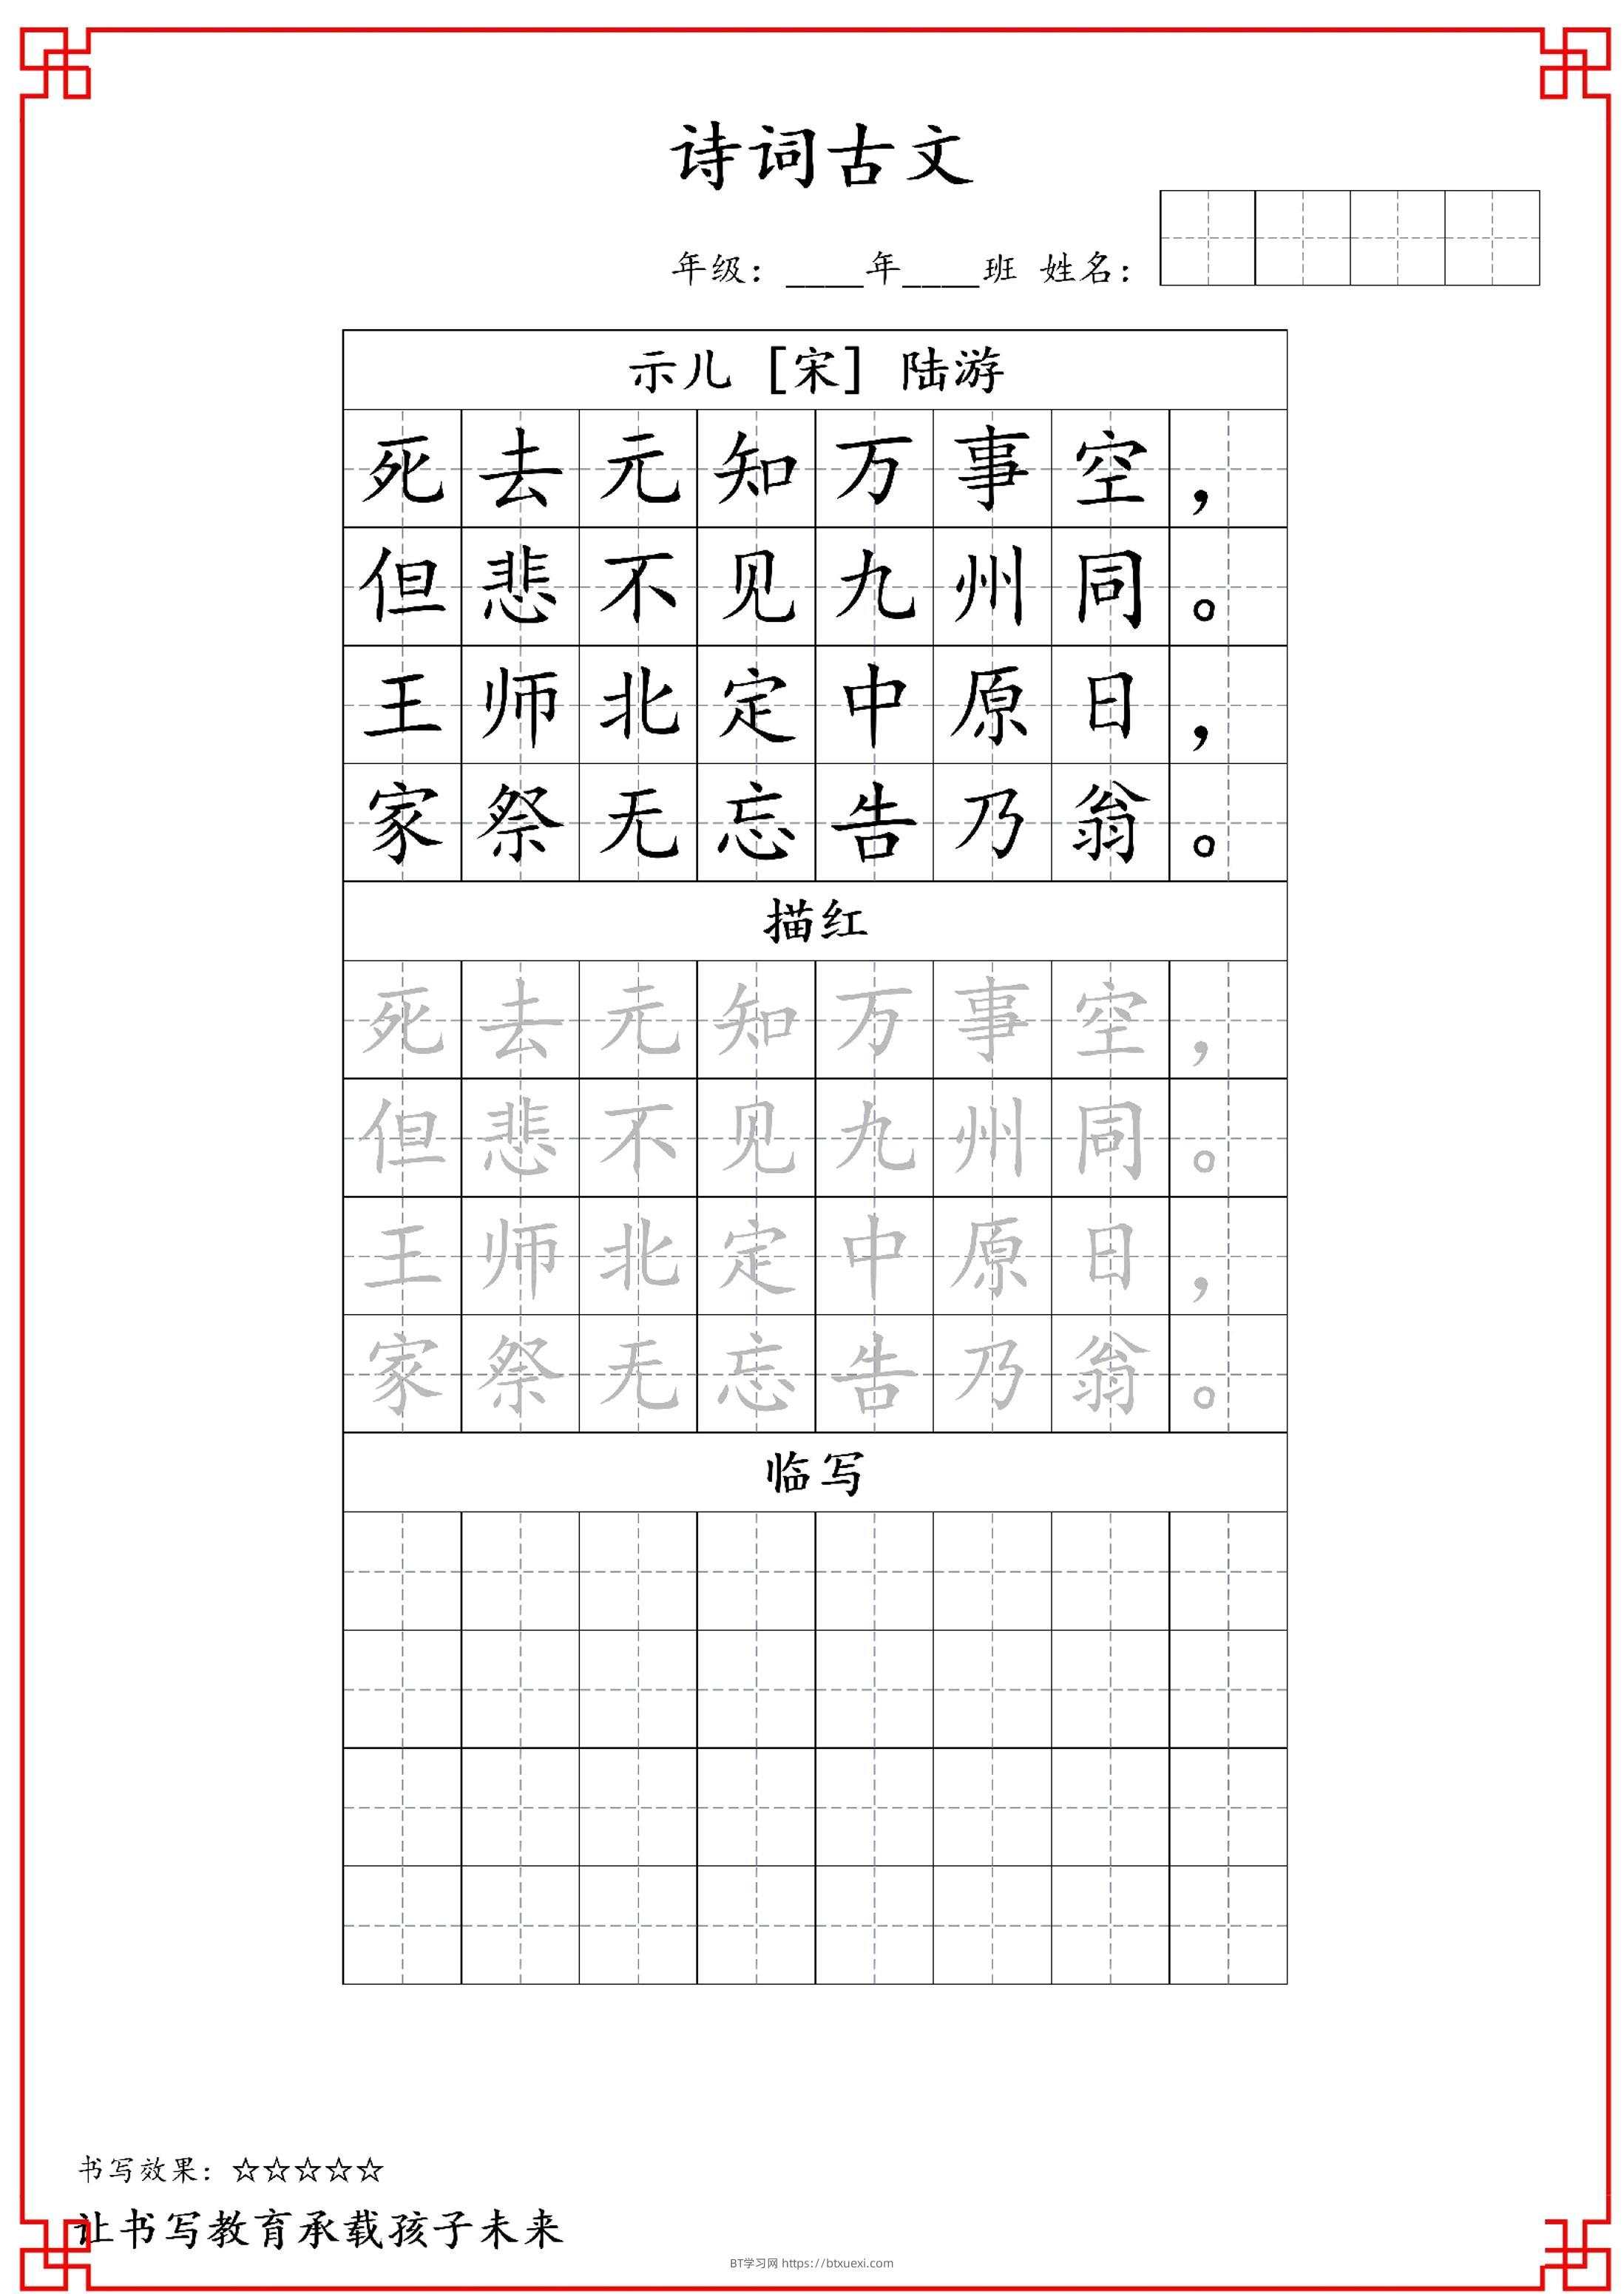 诗词古文
年级：____年____班 姓名：
示儿 [宋] 陆游
死去元知万事空，
但悲不见九州同。
王师北定中原日，
家祭无忘告乃翁。
描红
死去元知万事空，
但悲不见九州同。
王师北定中原日，
家祭无忘告乃翁。
临写
书写效果：☆☆☆☆☆
让书写教育承载孩子未来
BT学习网 https://btxuexi.com